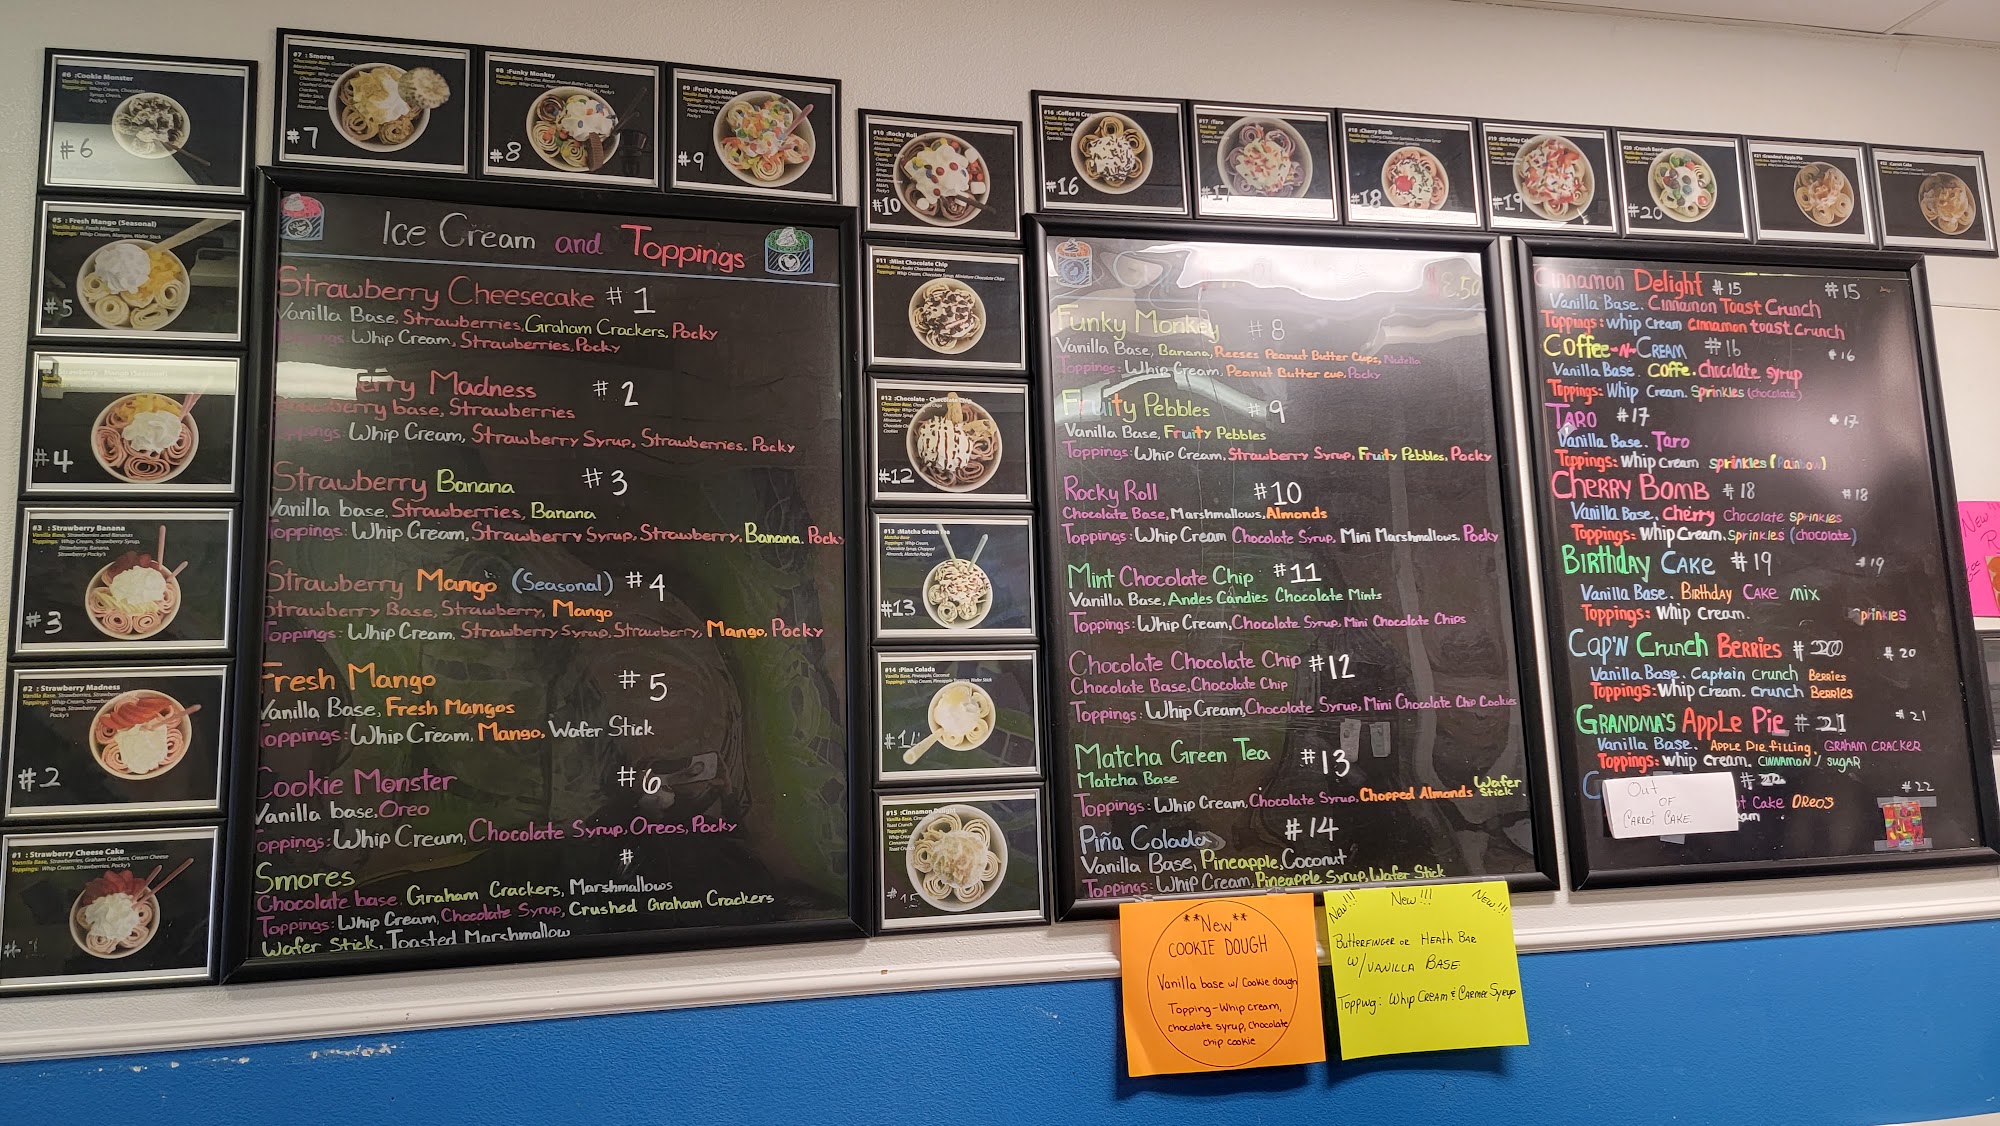 Ice Cream and Toppings
Strawberry Cheesecake #1
Vanilla Base, Strawberries, Graham Crackers, Pocky
Toppings: Whip Cream, Strawberries, Pocky
erry Madness #2
Strawberry base, Strawberries
Toppings: Whip Cream, Strawberry Syrup, Strawberries, Pocky
Strawberry Banana #3
Vanilla base, Strawberries, Banana
Toppings: Whip Cream, Strawberry Syrup, Strawberry, Banana, Pocky
Strawberry Mango (Seasonal) #4
Strawberry Base, Strawberry, Mango
Toppings: Whip Cream, Strawberry Syrup, Strawberry, Mango, Pocky
Fresh Mango #5
Vanilla Base, Fresh Mangos
Toppings: Whip Cream, Mango, Wafer Stick
Cookie Monster #6
Vanilla base, Oreo
Toppings: Whip Cream, Chocolate Syrup, Oreos, Pocky
Smores #
Chocolate base, Graham Crackers, Marshmallows
Toppings: Whip Cream, Chocolate Syrup, Crushed Graham Crackers
Wafer Stick, Toasted Marshmallow
8.50
Funky Monkey #8
Vanilla Base, Banana, Reeses Peanut Butter Cups, Nutella
Toppings: Whip Cream, Peanut Butter cup, Pocky
Fruity Pebbles #9
Vanilla Base, Fruity Pebbles
Toppings: Whip Cream, Strawberry Syrup, Fruity Pebbles, Pocky
Rocky Roll #10
Chocolate Base, Marshmallows, Almonds
Toppings: Whip Cream Chocolate Syrup, Mini Marshmallows, Pocky
Mint Chocolate Chip #11
Vanilla Base, Andes Candies Chocolate Mints
Toppings: Whip Cream, Chocolate Syrup, Mini Chocolate Chips
Chocolate Chocolate Chip #12
Chocolate Base, Chocolate Chip
Toppings: Whip Cream, Chocolate Syrup, Mini Chocolate Chip Cookies
Matcha Green Tea #13
Matcha Base
Toppings: Whip Cream, Chocolate Syrup, Chopped Almonds Wafer Stick
Piña Colada #14
Vanilla Base, Pineapple, Coconut
Toppings: Whip Cream, Pineapple Syrup, Wafer Stick
Cinnamon Delight #15 #15
Vanilla Base. Cinnamon Toast Crunch
Toppings: whip cream cinnamon toast crunch
Coffee-N-Cream #16 #16
Vanilla Base. Coffe. chocolate syrup
Toppings: Whip Cream. Sprinkles (chocolate)
Taro #17 #17
Vanilla Base. Taro
Toppings: Whip cream sprinkles (Rainbow)
Cherry Bomb #18 #18
Vanilla Base. Cherry Chocolate sprinkles
Toppings: Whip Cream. Sprinkles (chocolate)
Birthday Cake #19 #19
Vanilla Base. Birthday Cake Mix
Toppings: Whip Cream. Sprinkles
Cap'n Crunch Berries #20 #20
Vanilla Base. Captain Crunch Berries
Toppings: Whip Cream. Crunch Berries
Grandma's Apple Pie #21 #21
Vanilla Base. Apple Pie filling, Graham Cracker
Toppings: Whip Cream. Cinnamon / Sugar
C #22 #22
ot Cake Oreos
eam
Out
of
Carrot Cake
**New**
Cookie Dough
Vanilla base w/ Cookie dough
Topping-Whip cream,
chocolate syrup, chocolate
chip cookie
New!!! New!!! New!!!
Butterfinger or Heath Bar
w/Vanilla Base
Toppwg: Whip Cream & Carmel Syrup
New
#6 :Cookie Monster
#6
#5 : Fresh Mango (Seasonal)
#5
#4
#3 : Strawberry Banana
#3
#2 : Strawberry Madness
#2
#1 : Strawberry Cheese Cake
#7 : Smores
#7
#8 :Funky Monkey
#8
#9 :Fruity Pebbles
#9
#10 :Rocky Roll
#10
#11 :Mint Chocolate Chip
#12 :Chocolate - Chocolate Chip
#12
#13 :Matcha Green Tea
#13
#14 :Pina Colada
#14
#15 :Cinnamon Delight
#15
#16 :Coffee N Cream
#16
#17 :Taro
#17
#18 :Cherry Bomb
#18
#19 :Birthday Cake
#19
#20 :Crunch Berries
#20
#21 :Grandma's Apple Pie
#22 :Carrot Cake